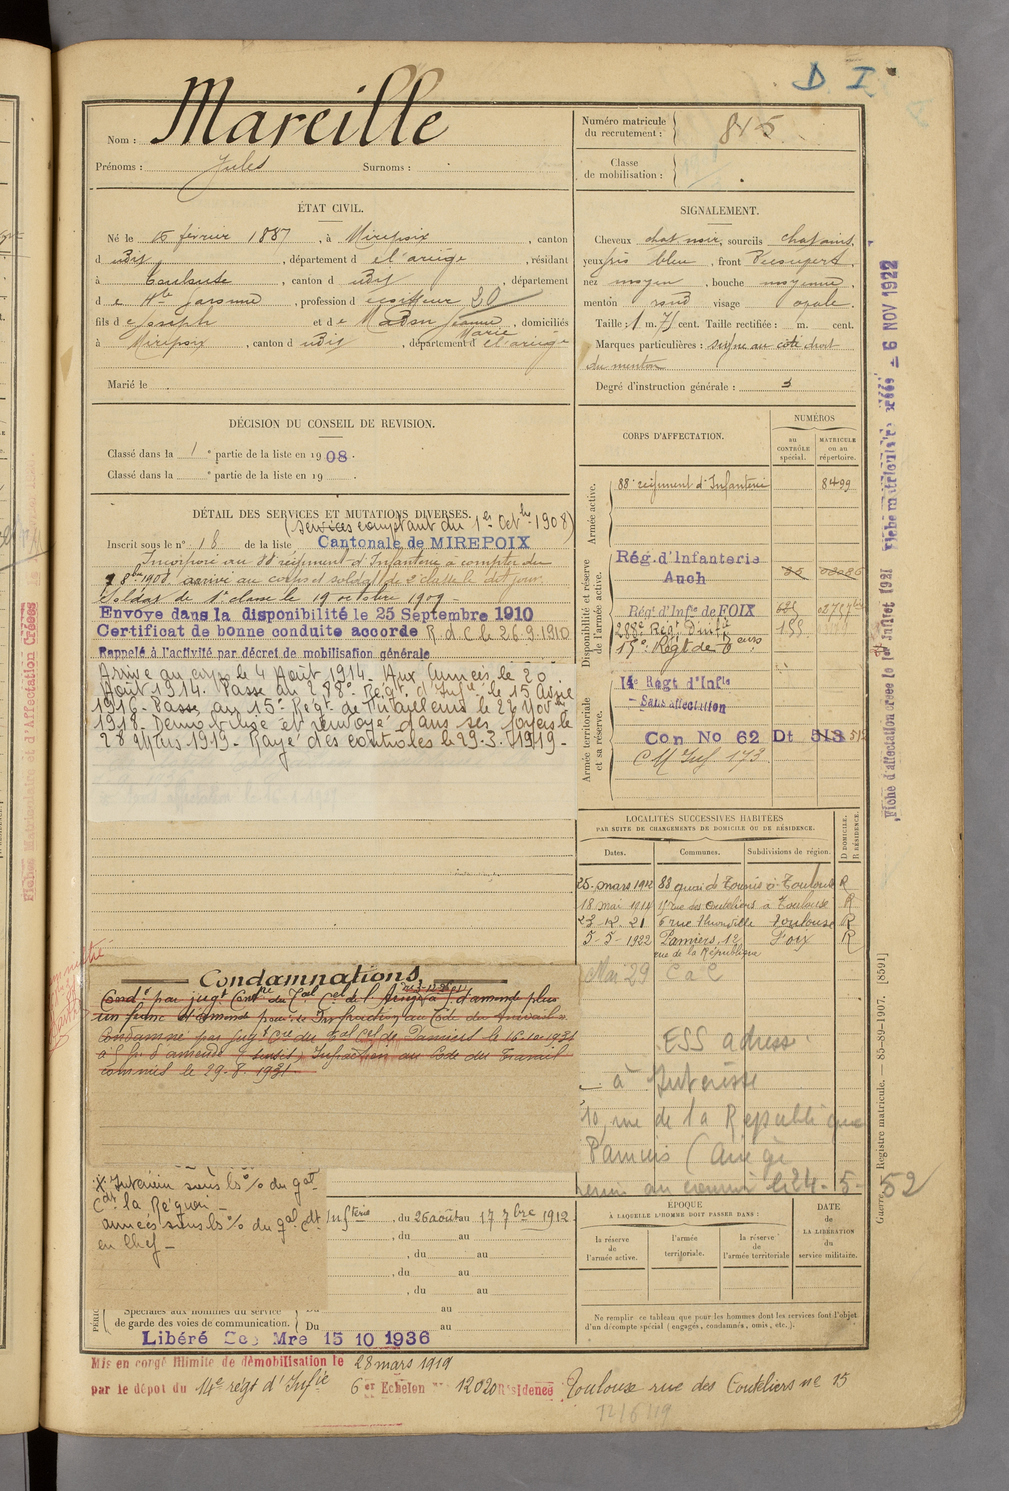 D I
Nom : Mareille
Prénoms : Jules Surnoms :
Numéro matricule
du recrutement : 845
Classe
de mobilisation :
ÉTAT CIVIL.
Né le 15 février 1887, à Mirepoix, canton
d udit, département d e l'ariège, résidant
à Toulouse, canton d udit, département
d e Hte Garonne, profession d e coiffeur 20
fils d e Joseph et d e Jeanne Marie, domiciliés
à Mirepoix, canton d udit, département d e l'ariège
Marié le
SIGNALEMENT.
Cheveux chat noir, sourcils chatains,
yeux gris bleu, front Découvert,
nez moyen, bouche moyenne,
menton rond visage ovale.
Taille : 1 m. 71 cent. Taille rectifiée : m. cent.
Marques particulières : signe au coté droit
du menton
Degré d'instruction générale : 3
DÉCISION DU CONSEIL DE REVISION.
Classé dans la 1e partie de la liste en 1908.
Classé dans la e partie de la liste en 19 .
DÉTAIL DES SERVICES ET MUTATIONS DIVERSES.
(services comptant du 1er Octbre 1908)
Inscrit sous le n° 18 de la liste Cantonale de MIREPOIX
Incorporé au 88e régiment d'Infanterie à compter du
8bre 1908, arrivé au corps et soldat de 2e classe le dit jour.
Soldat de 1e classe le 19 octobre 1909.
Envoyé dans la disponibilité le 25 Septembre 1910
Certificat de bonne conduite accordé R.d.C. le 26.9.1910
Rappelé à l'activité par décret de mobilisation générale
Arrivé au corps le 4 Août 1914. Aux Armées le 20
Août 1914. Passé au 288e Régt d'Infie le 15 Avril
1916. Passé au 15e Régt de Tirailleurs le 27 Novbre
1918. Démobilisé et renvoyé dans ses foyers le
28 Mars 1919. Rayé des contrôles le 29.3.1919.
CORPS D'AFFECTATION.
NUMÉROS
AU CONTRÔLE spécial.
MATRICULE ou au répertoire.
Armée active.
88e régiment d'Infanterie 8499
Disponibilité et réserve
de l'armée active.
Rég. d'Infanterie
Auch
Régt d'Infie de FOIX
288e Régt d'Infie
15e Régt de
Armée territoriale
et sa réserve.
14e Regt d'Infie
Sans affectation
Con No 62 Dt 513
C M Inf 173
LOCALITÉS SUCCESSIVES HABITÉES
PAR SUITE DE CHANGEMENTS DE DOMICILE OU DE RÉSIDENCE.
Dates. Communes. Subdivisions de région.
D DOMICILE.
R RÉSIDENCE.
25 mars 1912 88 quai de Tounis à Toulouse R
18 mai 1914 15 rue des Couteliers à Toulouse R
23.12.21 6 rue Thionville Toulouse R
5-5-1922 Pamiers, 12 Foix R
rue de la République
Mai 29 C a C
ESS adresse
à
10, rue de la République
Pamiers (Ariège
le 24-5-52
Condamnations
Condé par jugt du Tal Cel de l'Ariège
un franc d'amende pour Infraction au Code du travail
Condamné par jugt du Tal Cel de Pamiers le 16-10-1931
à 5 fr d'amende Infraction au Code du Travail
commise le 29-8-1931
X Intérieur sous les % du gal
Ct la Région
armées sous les % du gal Ct
en Chef
Infterie, du 26 août au 17 7bre 1912
, du au
, du au
, du au
, du au
Spéciales aux hommes du service
de garde des voies de communication.
Du au
Du au
Libéré Ser Mre 15 10 1936
ÉPOQUE
À LAQUELLE L'HOMME DOIT PASSER DANS :
la réserve de l'armée active.
l'armée territoriale.
la réserve de l'armée territoriale
DATE
DE
LA LIBÉRATION
du
service militaire.
Ne remplir ce tableau que pour les hommes dont les services font l'objet
d'un décompte spécial (engagés, condamnés, omis, etc.).
Mis en congé illimité de démobilisation le 28 mars 1919
par le dépôt du 14e régt d'Infie 6er Echelon N° 12020 Résidence Toulouse rue des Couteliers n° 15
12/6/19
Fiche d'affectation créée le 1er Juillet 1921
Fiche matriculaire créée - 6 NOV 1922
Guerre. Registre matricule. — 85-89-1907. [8591]
Fiches Matriculaire et d'Affectation Créées